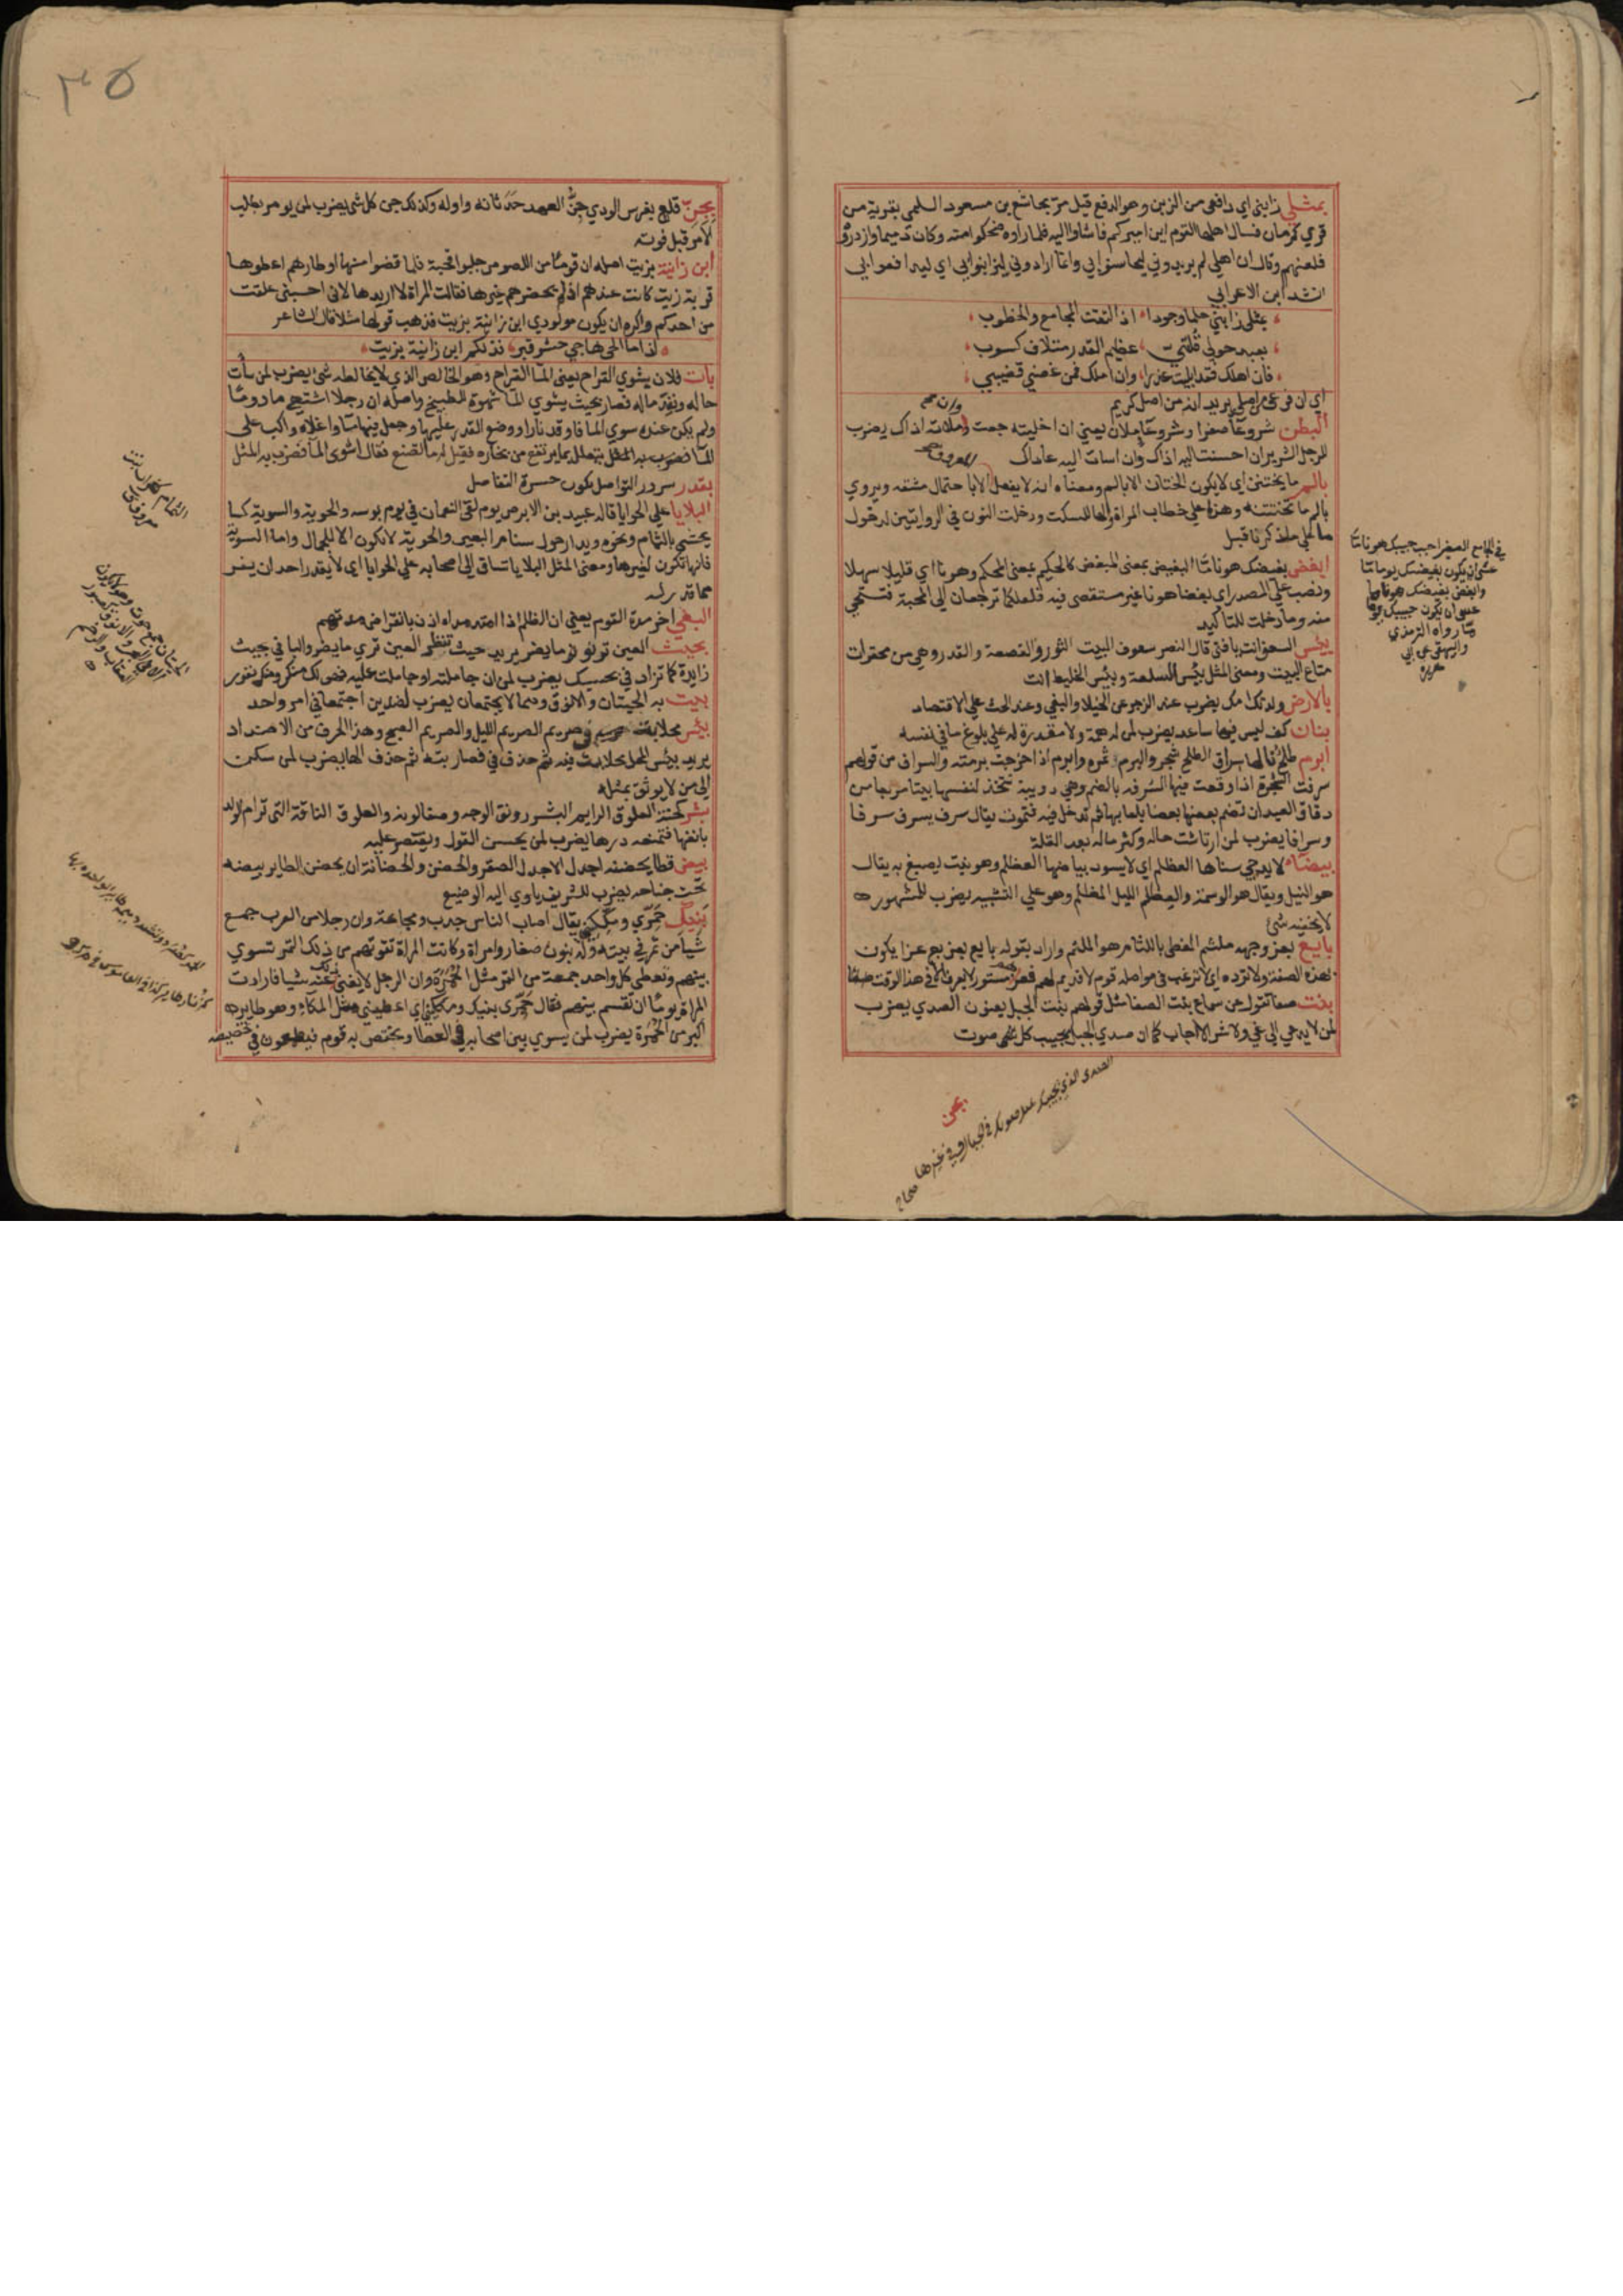 بمثلي زابني اي دافعي من الزبن وهو الدفع قيل مر مجاشع بن مسعود السلمي بقرية من
قري كرمان فسال اهلها القوم اين اميركم فاشاوا اليه فلما راوه ضحكوا منه وكان دميما وازدروه
فلعنهم وقال ان اهلي لم يريدوني ليحاسنوا بي وانما ارادوني ليزابنوا بي اي ليدافعوا بي
انشد ابن الاعرابي
بمثلي زابني حلما وجودا اذا التقت المجامع والخطوب
بعيد حولي قلبي عظيم القدر متلاف كسوب
فان اهلك فقد ابليت عذرا وان املك فمن غضبي قضيبي
اي ان فرعي من اصلي يريد انه من اصل كريم
البطن شر وعاء صفرا وشر وعاء ملان يعني ان اخليته جعت وان ملاته اذاك يضرب
للرجل الشرير ان احسنت اليه اذاك وان اسات اليه عاداك
بالم ما يختتنن اي لا يكون الختان الا بالم ومعناه انه لا يفعل الا باحتمال مشقة ويروي
بالم ما تختتننه وهذا علي خطاب المراة والها للسكت ودخلت النون في الروايتين لدخول
ما علي ما ذكرنا قبل
ابغض بغيضك هونا ما البغيض بمعني المبغض كالحكيم بمعني المحكم وهونا اي قليلا سهلا
ونصب علي المصدر اي بغضا هونا غير مستقصي فيه فلعلكما ترجعان الي المحبة فتستحي
منه وما دخلت للتاكيد
بئس السعف انت يا فتي قال النضر سعوف البيت التور والقصعة والقدر وهي من محقرات
متاع البيت ومعني المثل بئس السلعة وبئس الخليط انت
بالارض ولدتك امك يضرب عند الزجر عن الخيلا والبغي وعند الحث علي الاقتصاد
بنان كف ليس فيها ساعد يضرب لمن له همة ولا مقدرة له علي بلوغ ما في نفسه
ابرم طلح نالها سراف الطلح شجر والبرم ثمره وابرم اذا خرجت برمته والسراف من قولهم
سرفت الشجرة اذا وقعت فيها السرفه بالضم وهي دويبة تتخذ لنفسها بيتا مربعا من
دقاق العيدان تضم بعضها بعضا بلعابها ثم تدخل فيه فتموت يقال سرف يسرف سرفا
وسرافا يضرب لمن ارتاشت حاله وكثر ماله بعد القلة
بيضاء لا يدجي سناها العظلم اي لا يسود بياضها العظلم وهو نبت يصبغ به يقال
هو النيل ويقال هو الوسمة والعظلم الليل المظلم وهو علي التشبيه يضرب للمشهور
لا يخفيه شئ
بايع بعز وجهه ملثم المغطي باللثام هو الملثم واراد بقوله بايع بعز بع عزا يكون
بهذه الصفة ولا تزده اي لا ترغب في مواصلة قوم لا قديم لهم
بنت صفا تقول عن سماع بنت الصفا مثل قولهم بنت الجبل يعنون الصدي يضرب
لمن لا يدعي الي غي ولا شر الا اجاب كما ان صدي الجبل يجيب كل صوت
الصدي الذي يجيبك بمثل صوتك في الجبال وفي غيرها صحاح
بجن
في الجامع الصغير احبب حبيبك هونا ما
عسي ان يكون بغيضك يوما ما
وابغض بغيضك هونا ما
عسي ان يكون حبيبك يوما
ما رواه الترمذي
والبيهقي عن ابي
هريرة
٣٥
بجن قلع بغرس الودي جن العهد حدثانه واوله وكذلك جن كل شئ يضرب لمن يومر بطلب
الامر قبل فوته
ابن زانية بزيت اصله ان قوما من اللصوص جلبوا قحبة فلما قضوا منها اوطارهم اعطوها
قربة زيت كانت عندهم اذ لم يحضرهم غيرها فقالت المراة لا اريدها لاني احسبني علقت
من احدكم واكره ان يكون مولودي ابن زانية بزيت فذهب قولها مثلا قال الشاعر
اذا ما الحي هاجي حشو قبر فذلكم ابن زانية بزيت
بات فلان يشوي القراح يعني الماء القراح وهو الخالص الذي لا يخالطه شئ يضرب لمن ساءت
حاله ونفد ماله فصار بحيث يشوي الماء شهوة للطبيخ واصله ان رجلا اشتهي مادوما
ولم يكن عنده سوي الماء فاوقد نارا ووضع القدر عليها وجعل فيها ماء واغلاه واكب علي
الماء يتعلل بما يرتفع من بخاره فقيل له ما تصنع فقال اشوي الماء فضرب به المثل
بقدر سرور التواصل يكون حسرة التفاصل
البلايا علي الحوايا قاله عبيد بن الابرص يوم لقي النعمان في يوم بوسه والحوية والسوية كسا
يحشي بالثمام ونحوه ويدار حول سنام البعير والحوية لا تكون الا للجمال واما السوية
فانها تكون لغيرها ومعني المثل البلايا تساق الي اصحابه علي الحوايا اي لا يقدر احد ان يفر
مما قدر له
البغي اخر مدة القوم يعني ان الظالم اذا امتد مداه اذن بانقراض مدتهم
بحيث العين ترنو نر ما يضر يريد حيث تنظر العين تري ما يضر والبا في بحيث
زايدة كما تزاد في بحسبك يضرب لمن ان جاملته او جاملت عليه فهو لك منكر وعنك نفور
بيت به الحيتان والانوق وهما لا يجتمعان يضرب لضدين اجتمعا في امر واحد
بئس محل بت في صريم الصريم الليل والصريم الصبح وهذا الحرف من الاضداد
يريد بئس المحل محل بت فيه ثم حذف في فصار بته ثم حذف الها يضرب لمن سكن
الي من لا يوثق بمثله
بشر كحنة العلوق الرايم البشر رونق الوجه وصفا لونه والعلوق الناقة التي ترام الولد
بانفها فتمنعه درها يضرب لمن يحسن القول ويقتصر عليه
بيض قطا يحضنه اجدل الاجدل الصقر والحضن والحضانة ان يحضن الطاير بيضه
تحت جناحه يضرب للشريف ياوي اليه الوضيع
بنيك حمري ومككيني يقال اصاب الناس جدب ومجاعة وان رجلا من العرب جمع
شيا من تمر في بيته وله بنون صغار وامراة وكانت المراة تقوتهم من ذلك التمر تسوي
بينهم وتعطي كل واحد جمعة من التمر مثل الحمرة وان الرجل لا يغني ذلك عنه شيا فارادت
المراة يوما ان تقسم بينهم فقال حمري بنيك ومككيني اي اعطيني مثل المكاء وهو طاير
اكبر من الحمرة يضرب لمن يسوي بين اصحابه في العطا ويختص به قوم فيطمعون في تخصيصه